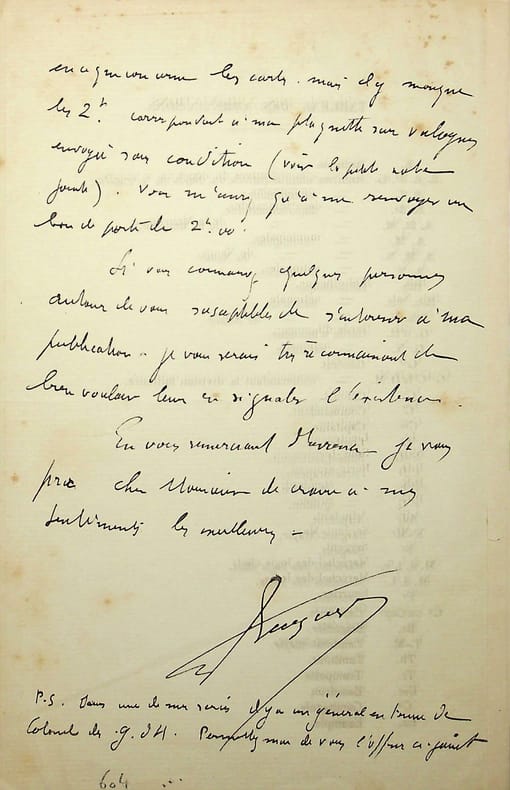 en ce qui concerne les cartes. mais il y manque
les 2f. correspondant à ma plaquette sur Valognes
envoyée sous condition (voir la petite note
jointe). Vous n'aurez qu'à me renvoyer un
bon de poste de 2f.00.
Si vous connaissez quelques personnes
autour de vous susceptibles de s'intéresser à ma
publication. je vous serais très reconnaissant de
bien vouloir leur en signaler l'existence.
En vous remerciant d'avance je vous
prie cher Monsieur de croire à mes
sentiments les meilleurs =
P.S. Dans une de mes séries il y a un général en tenue de
Colonel de G. d'H. Permettez moi de vous l'offrir ci-joint
604